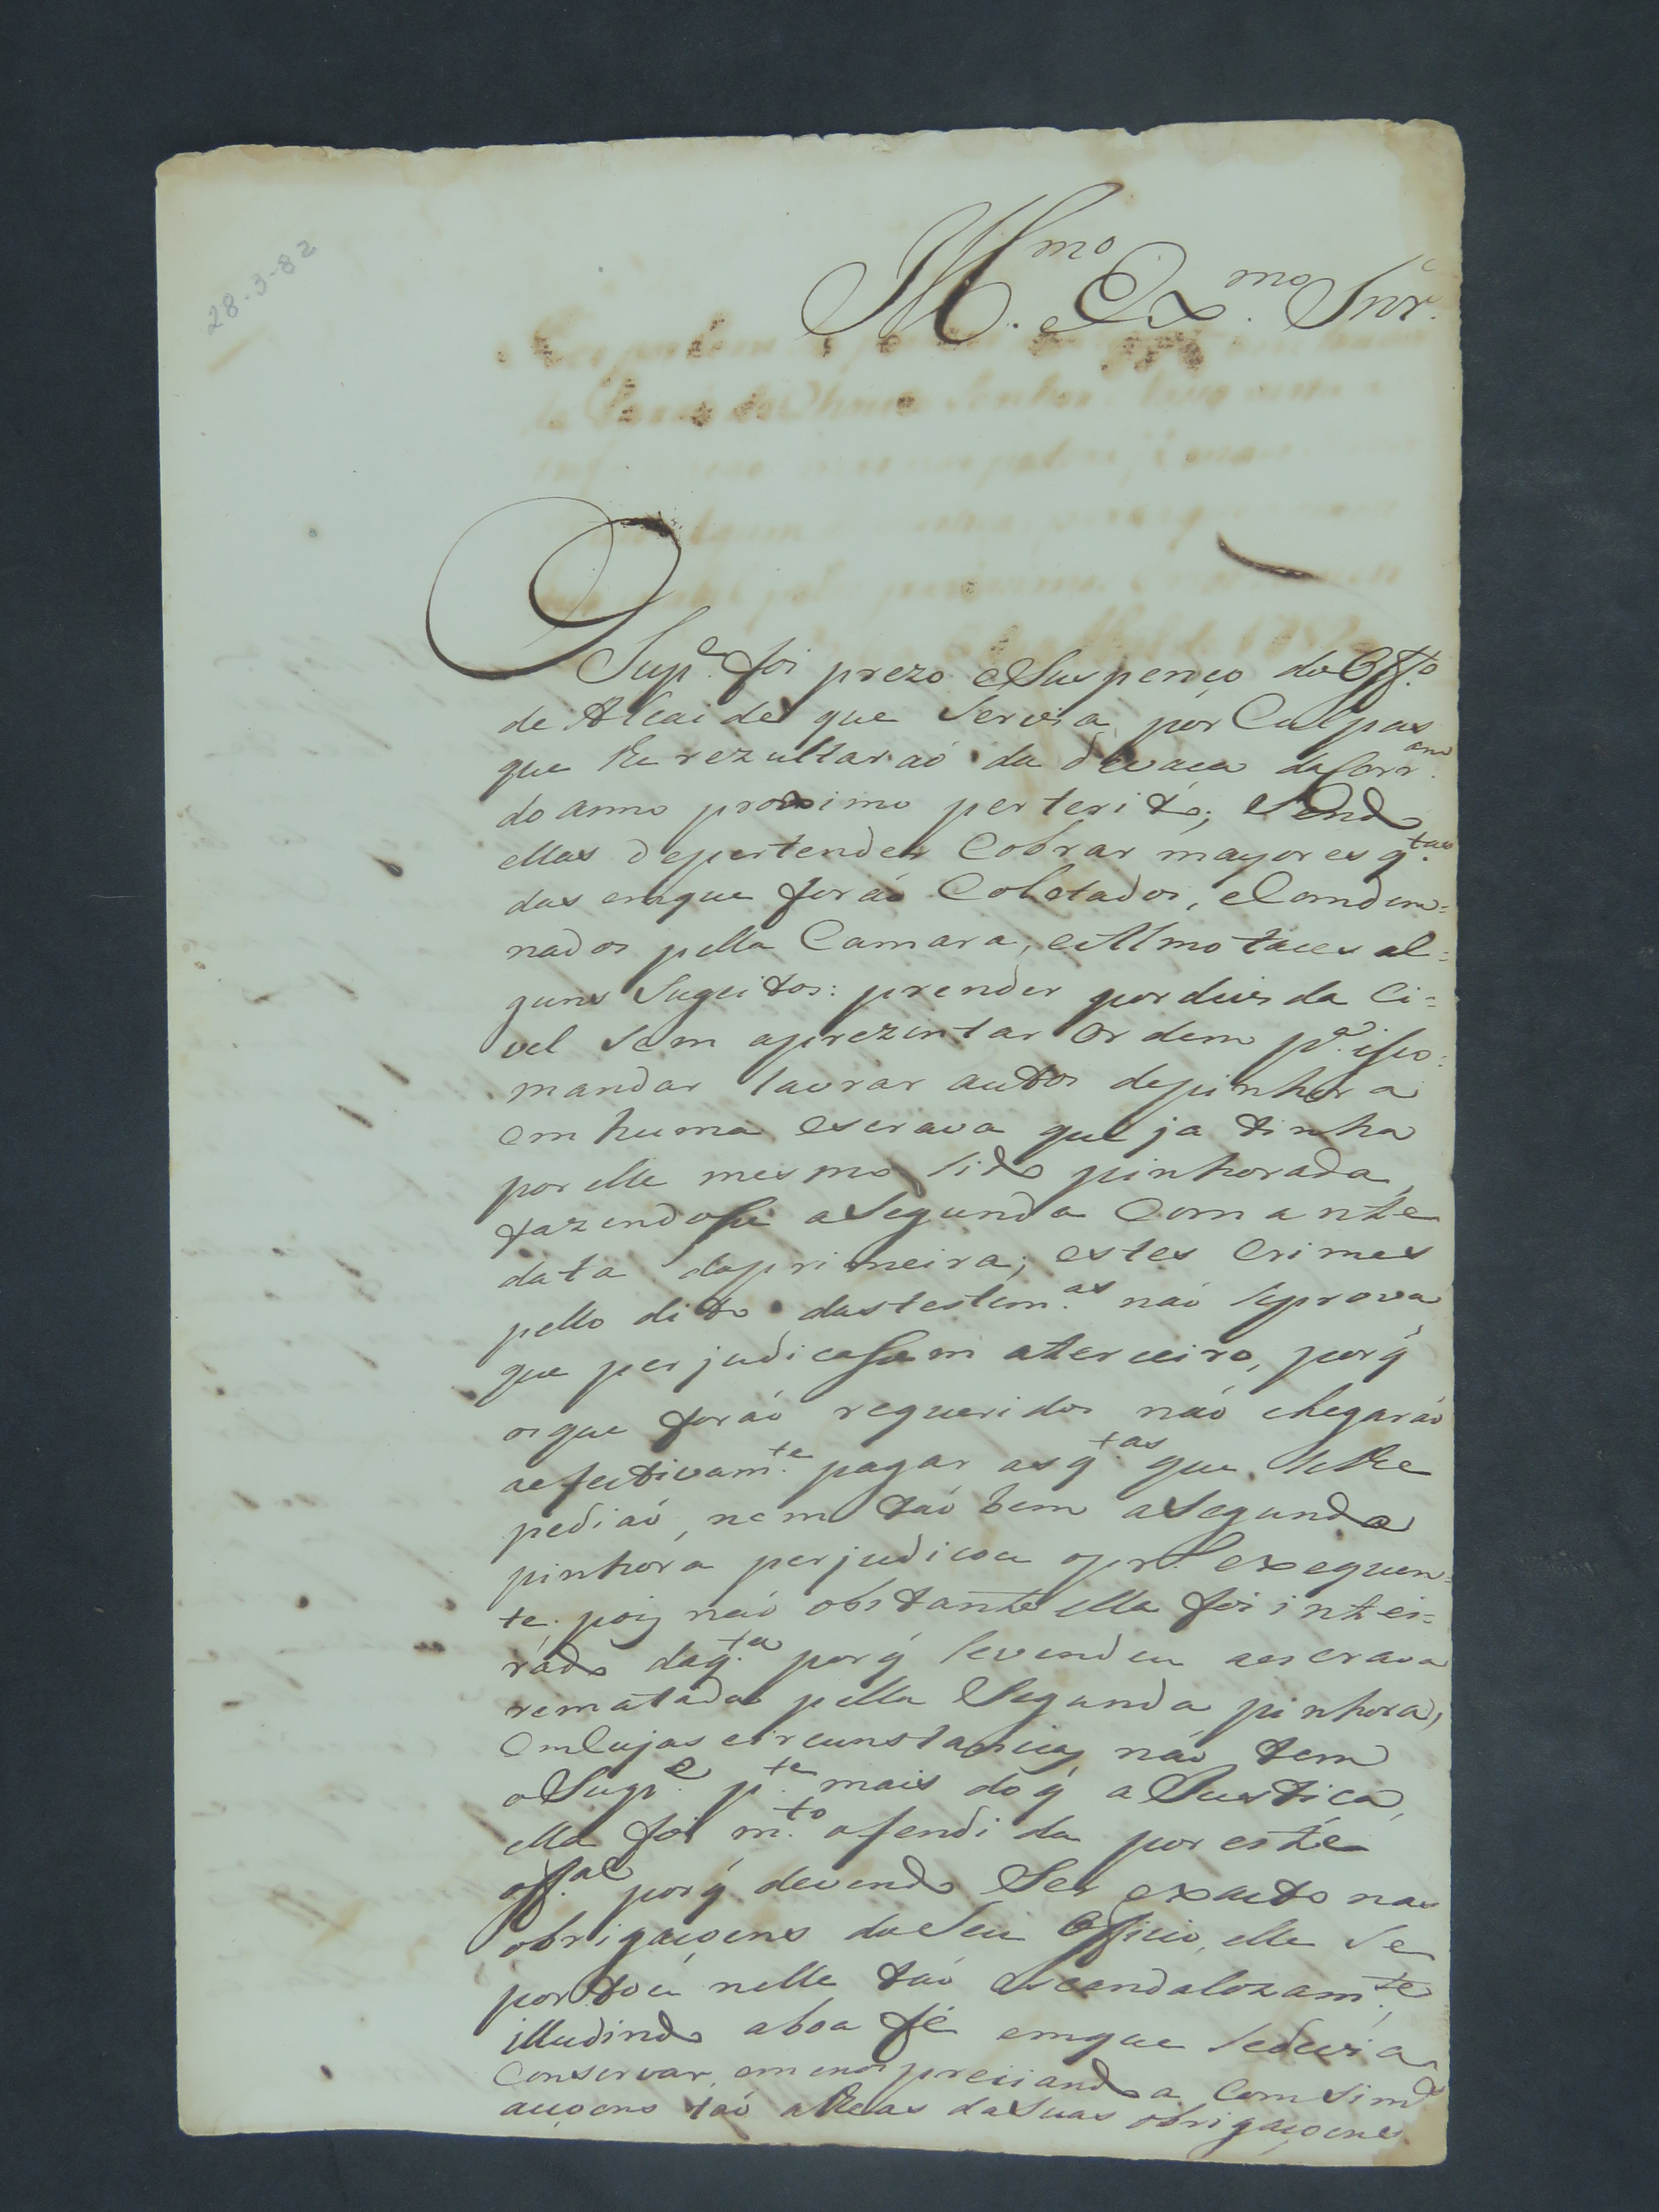 28-3-82
Ill.mo Ex.mo Snr.
O Sup.e foi prezo e Suspenço do Off.o
de Alcaide que Servia por Culpas
que lhe rezultaraó da devaça da Corr.am
do anno proximo perterito; Sendo
ellas de pertender Cobrar mayores q.tas
das emque foraó Coletados, e Comdem=
nados pella Camara, e Almotaces al=
guns Sugeitos: prender por devida Ci=
vel Sem aprezentar Ordem p.a isso:
mandar lavrar autos depinhora
em huma escrava que ja tinha
por elle mesmo sido pinhorada,
fazendose a Segunda Com ante
data da primeira; estes Crimes
pello dito das testem.as naó Se prova
que perjudicasem aterceiro, porq̃
os que foraó requeridos naó chegaraó
aefectivam.te pagar as q.tas que Se lhe
pediaó, nem taó bem a Segunda
pinhora perjudicou o pr.o exequen=
te; pois naó obstante ella foi intei=
rado da q.ta porq̃ Se vendeu a escrava
rematada pella Segunda pinhora,
Em Cujas circunstancias naó tem
o Sup.e p.te mais do q̃ a Justiça,
ella foi m.to ofendida por este
off.al porq̃ devendo Ser exacto nas
obrigaçoens do Seu Officio, elle Se
portou nelle taó escandalozam.te,
illudindo aboa fé emque Se devia
Conservar, emenospreciando a Com Simo
açoens taó alheas da Suas obrigaçoens